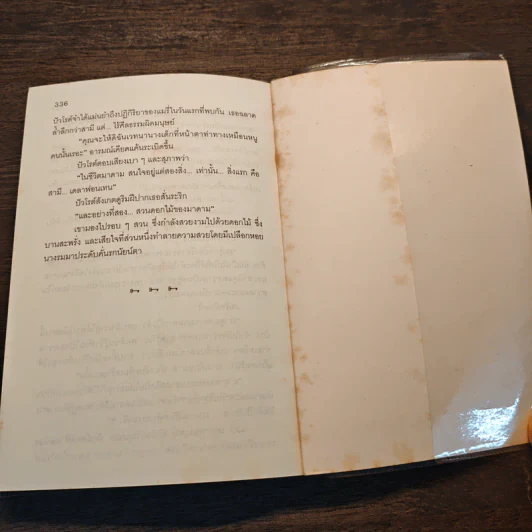 336
ปัวโรต์จำได้แม่นยำถึงปฏิกิริยาของแมรี่ในวันแรกที่พบกัน เธอฉลาด
ล้ำลึกกว่าสามี แต่... ไร้ศีลธรรมผิดมนุษย์
"คุณจะให้ดิฉันเวทนานางเด็กที่หน้าตาท่าทางเหมือนหนู
คนนั้นเรอะ" อารมณ์เคียดแค้นระเบิดขึ้น
ปัวโรต์ตอบเสียงเบา ๆ และสุภาพว่า
"ในชีวิตมาดาม สนใจอยู่แค่สองสิ่ง... เท่านั้น... สิ่งแรก คือ
สามี... เคลาฟอนแทน"
ปัวโรต์สังเกตดูริมฝีปากเธอสั่นระริก
"และอย่างที่สอง... สวนดอกไม้ของมาดาม"
เขามองไปรอบ ๆ สวน ซึ่งกำลังสวยงามไปด้วยดอกไม้ ซึ่ง
บานสะพรั่ง และเสียใจที่ส่วนหนึ่งทำลายความสวยโดยมีเปลือกหอย
นางรมมาประดับคั่นรกนัยน์ตา